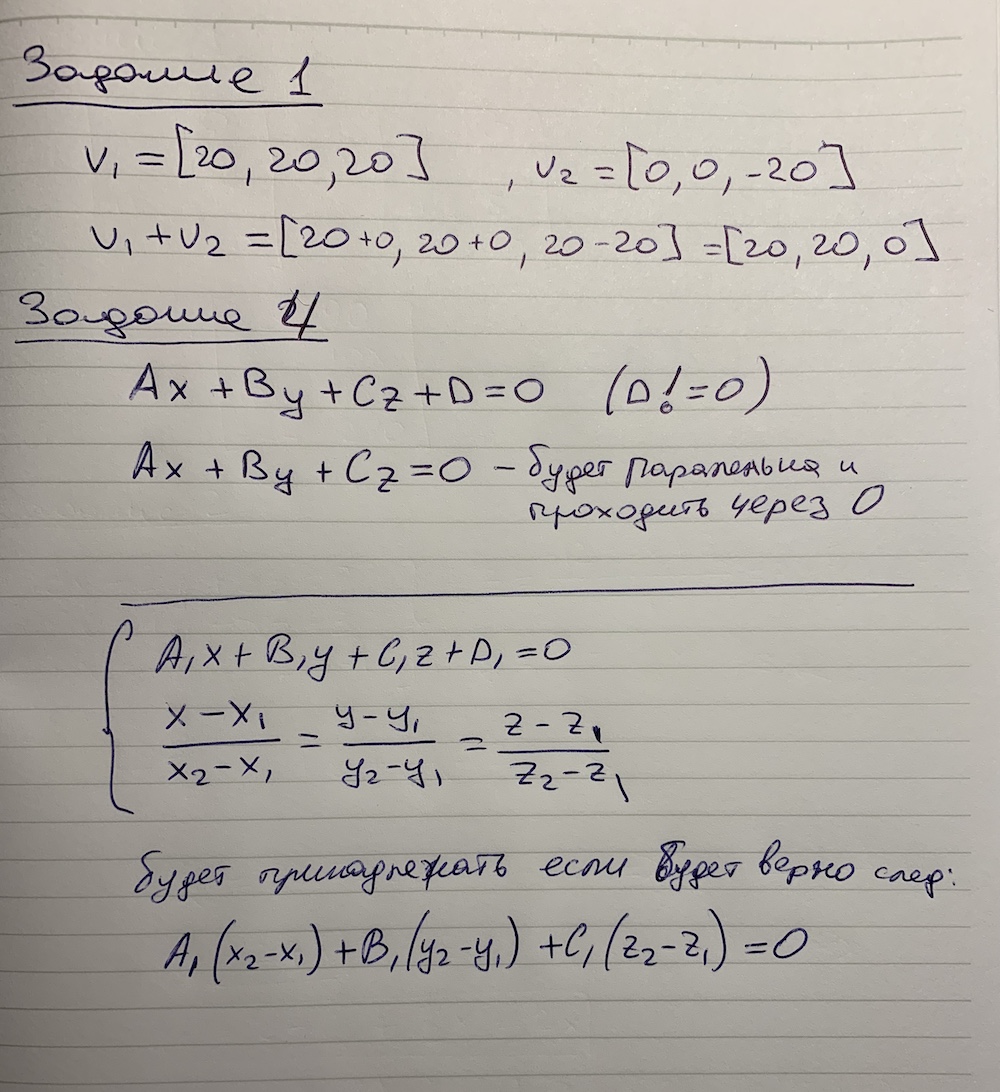 Задание 1
V₁ = [20, 20, 20] , V₂ = [0, 0, -20]
V₁ + V₂ = [20+0, 20+0, 20-20] = [20, 20, 0]
Задание 4
Ax + By + Cz + D = 0 (D != 0)
Ax + By + Cz = 0 – будет паралельна и
проходить через 0
A₁x + B₁y + C₁z + D₁ = 0
(x - x₁)/(x₂ - x₁) = (y - y₁)/(y₂ - y₁) = (z - z₁)/(z₂ - z₁)
будет принадлежать если будет верно след:
A₁(x₂-x₁) + B₁(y₂-y₁) + C₁(z₂-z₁) = 0